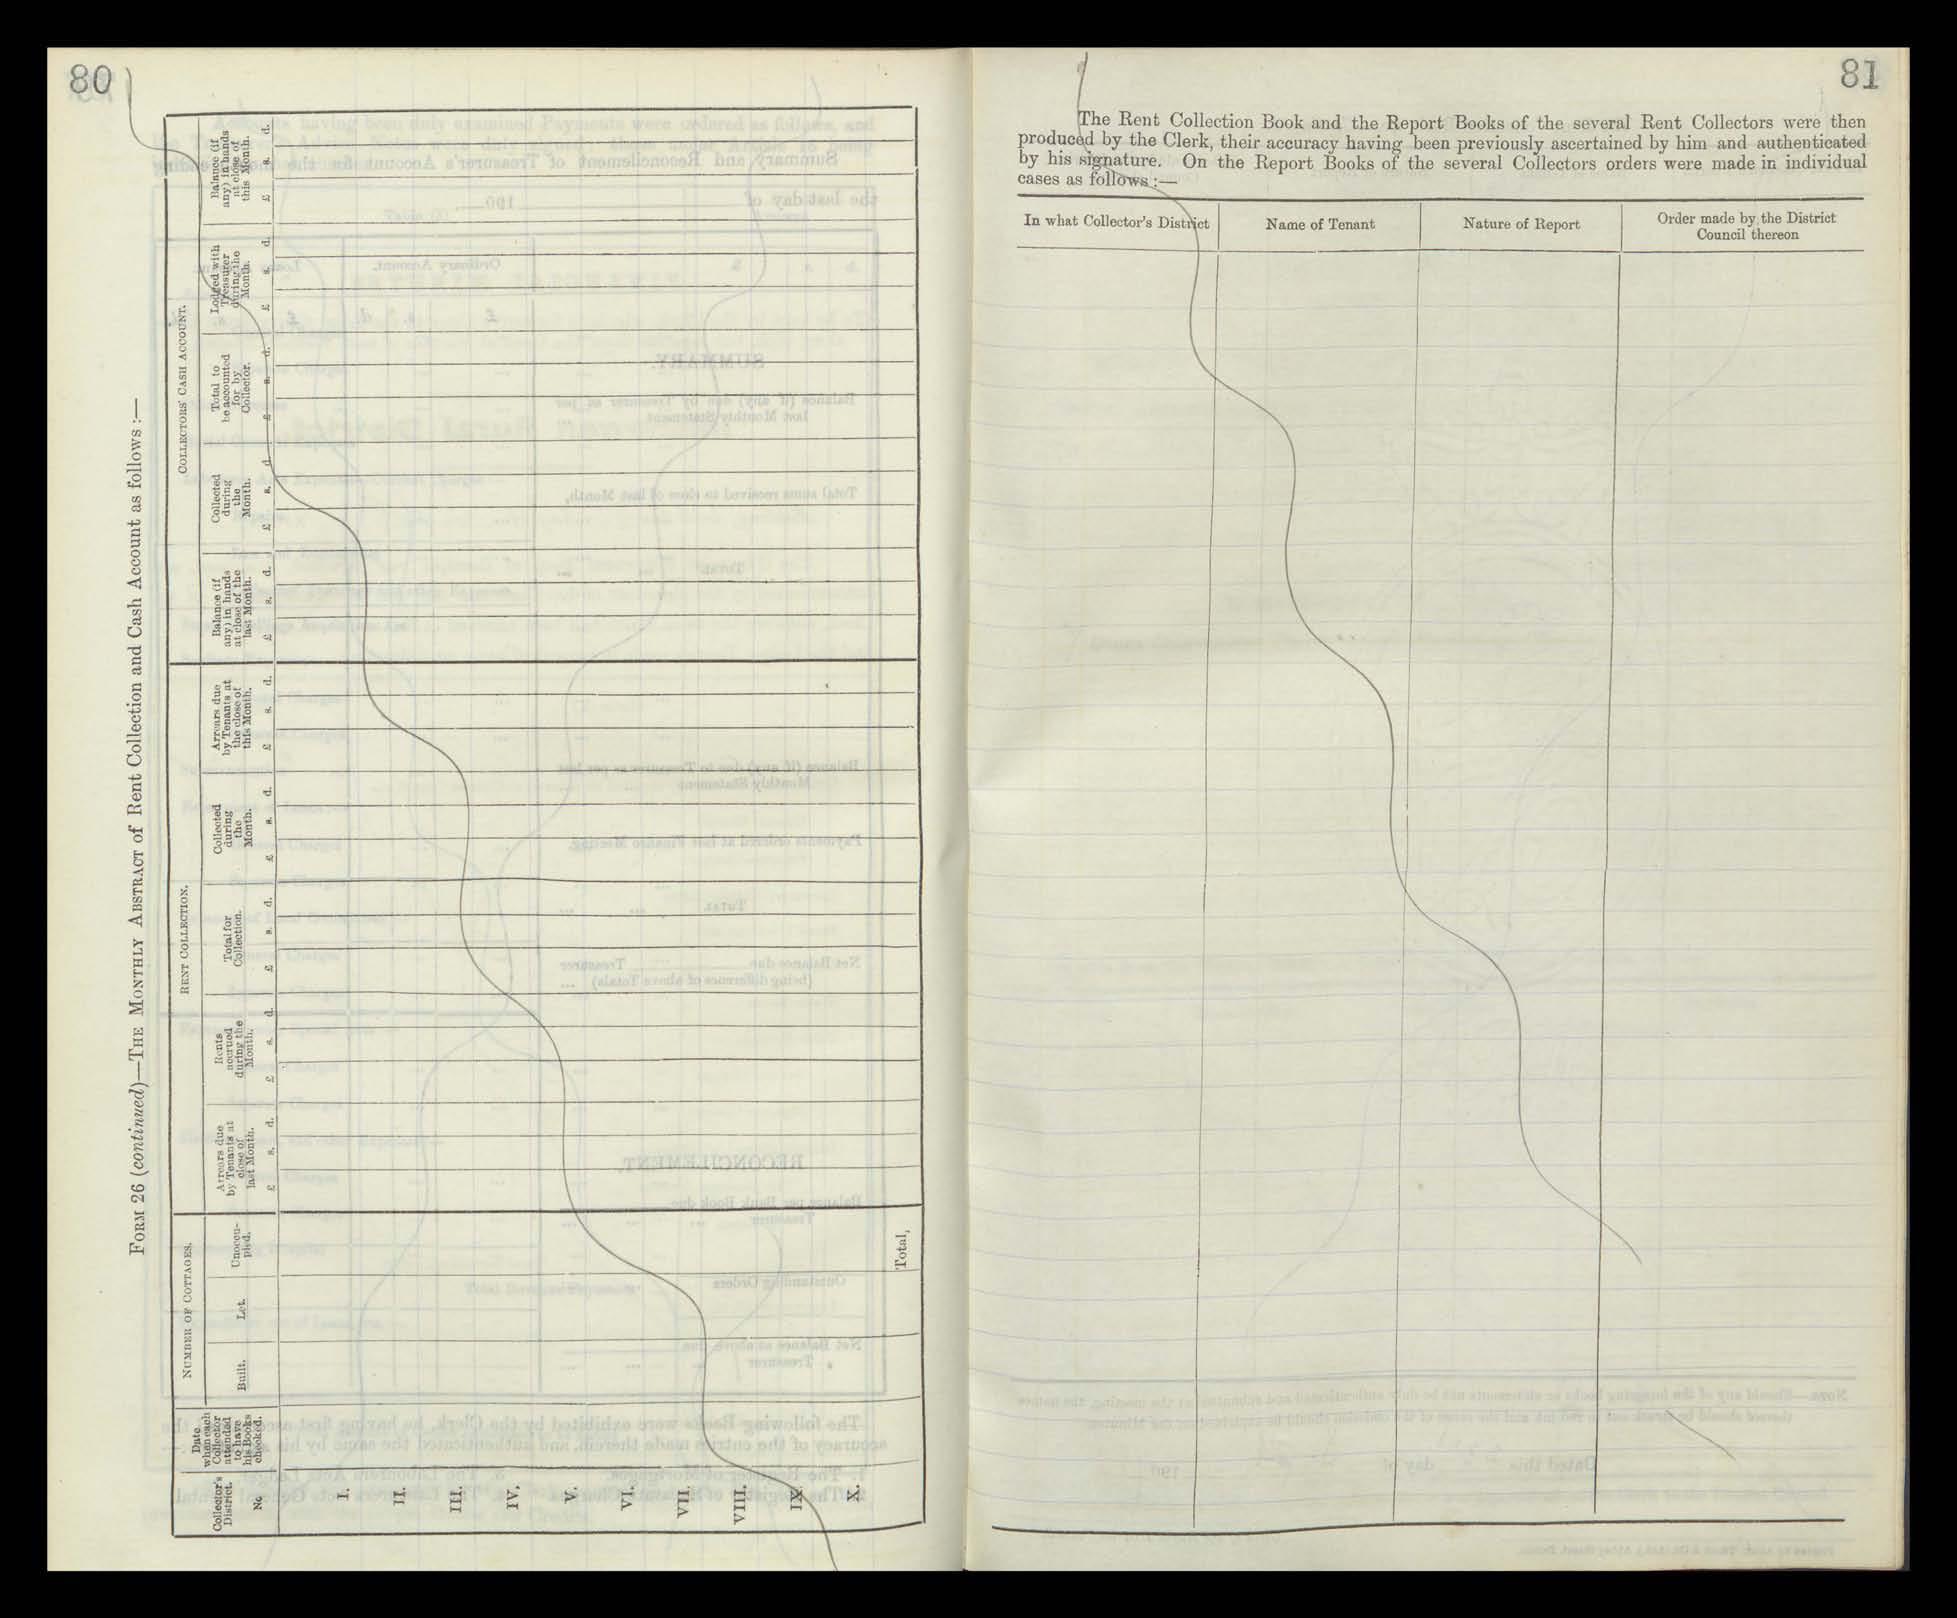 80
FORM 26 (continued)—THE MONTHLY ABSTRACT of Rent Collection and Cash Account as follows :—
Collector's District.
No
Date when each Collector attended to have his Books checked.
NUMBER OF COTTAGES.
Built.
Let.
Unoccupied.
RENT COLLECTION.
Arrears due by Tenants at close of last Month.
£ s. d.
Rents accrued during the Month.
£ s. d.
Total for Collection.
£ s. d.
Collected during the Month.
£ s. d.
Arrears due by Tenants at the close of this Month.
£ s. d.
COLLECTORS' CASH ACCOUNT.
Balance (if any) in hands at close of the last Month.
£ s. d.
Collected during the Month.
£ s. d.
Total to be accounted for by Collector.
£ s. d.
Lodged with Treasurer during the Month.
£ s. d.
Balance (if any) in hands at close of this Month.
£ s. d.
I.
II.
III.
IV.
V.
VI.
VII.
VIII.
IX.
X.
Total,
81
The Rent Collection Book and the Report Books of the several Rent Collectors were then
produced by the Clerk, their accuracy having been previously ascertained by him and authenticated
by his signature. On the Report Books of the several Collectors orders were made in individual
cases as follows :—
In what Collector's District
Name of Tenant
Nature of Report
Order made by the District
Council thereon